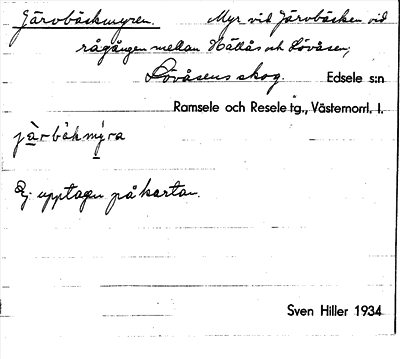 Järvbäckmyren. Myr vid Järvbäcken vid
rågången mellan Hällås och Lövåsen,
Lövåsens skog. Edsele s:n
Ramsele och Resele tg., Västernorrl. l.
jàrbäkmýra
Ej upptagen på kartan.
Sven Hiller 1934